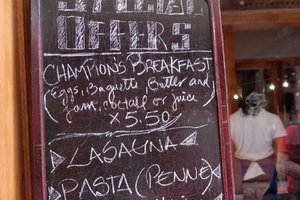 OFFERS
CHAMPION'S BREAKFAST
(Eggs, Baguette Butter and
Jam, coctail or juice)
x 5.50
LASAGNA
PASTA (PENNE)